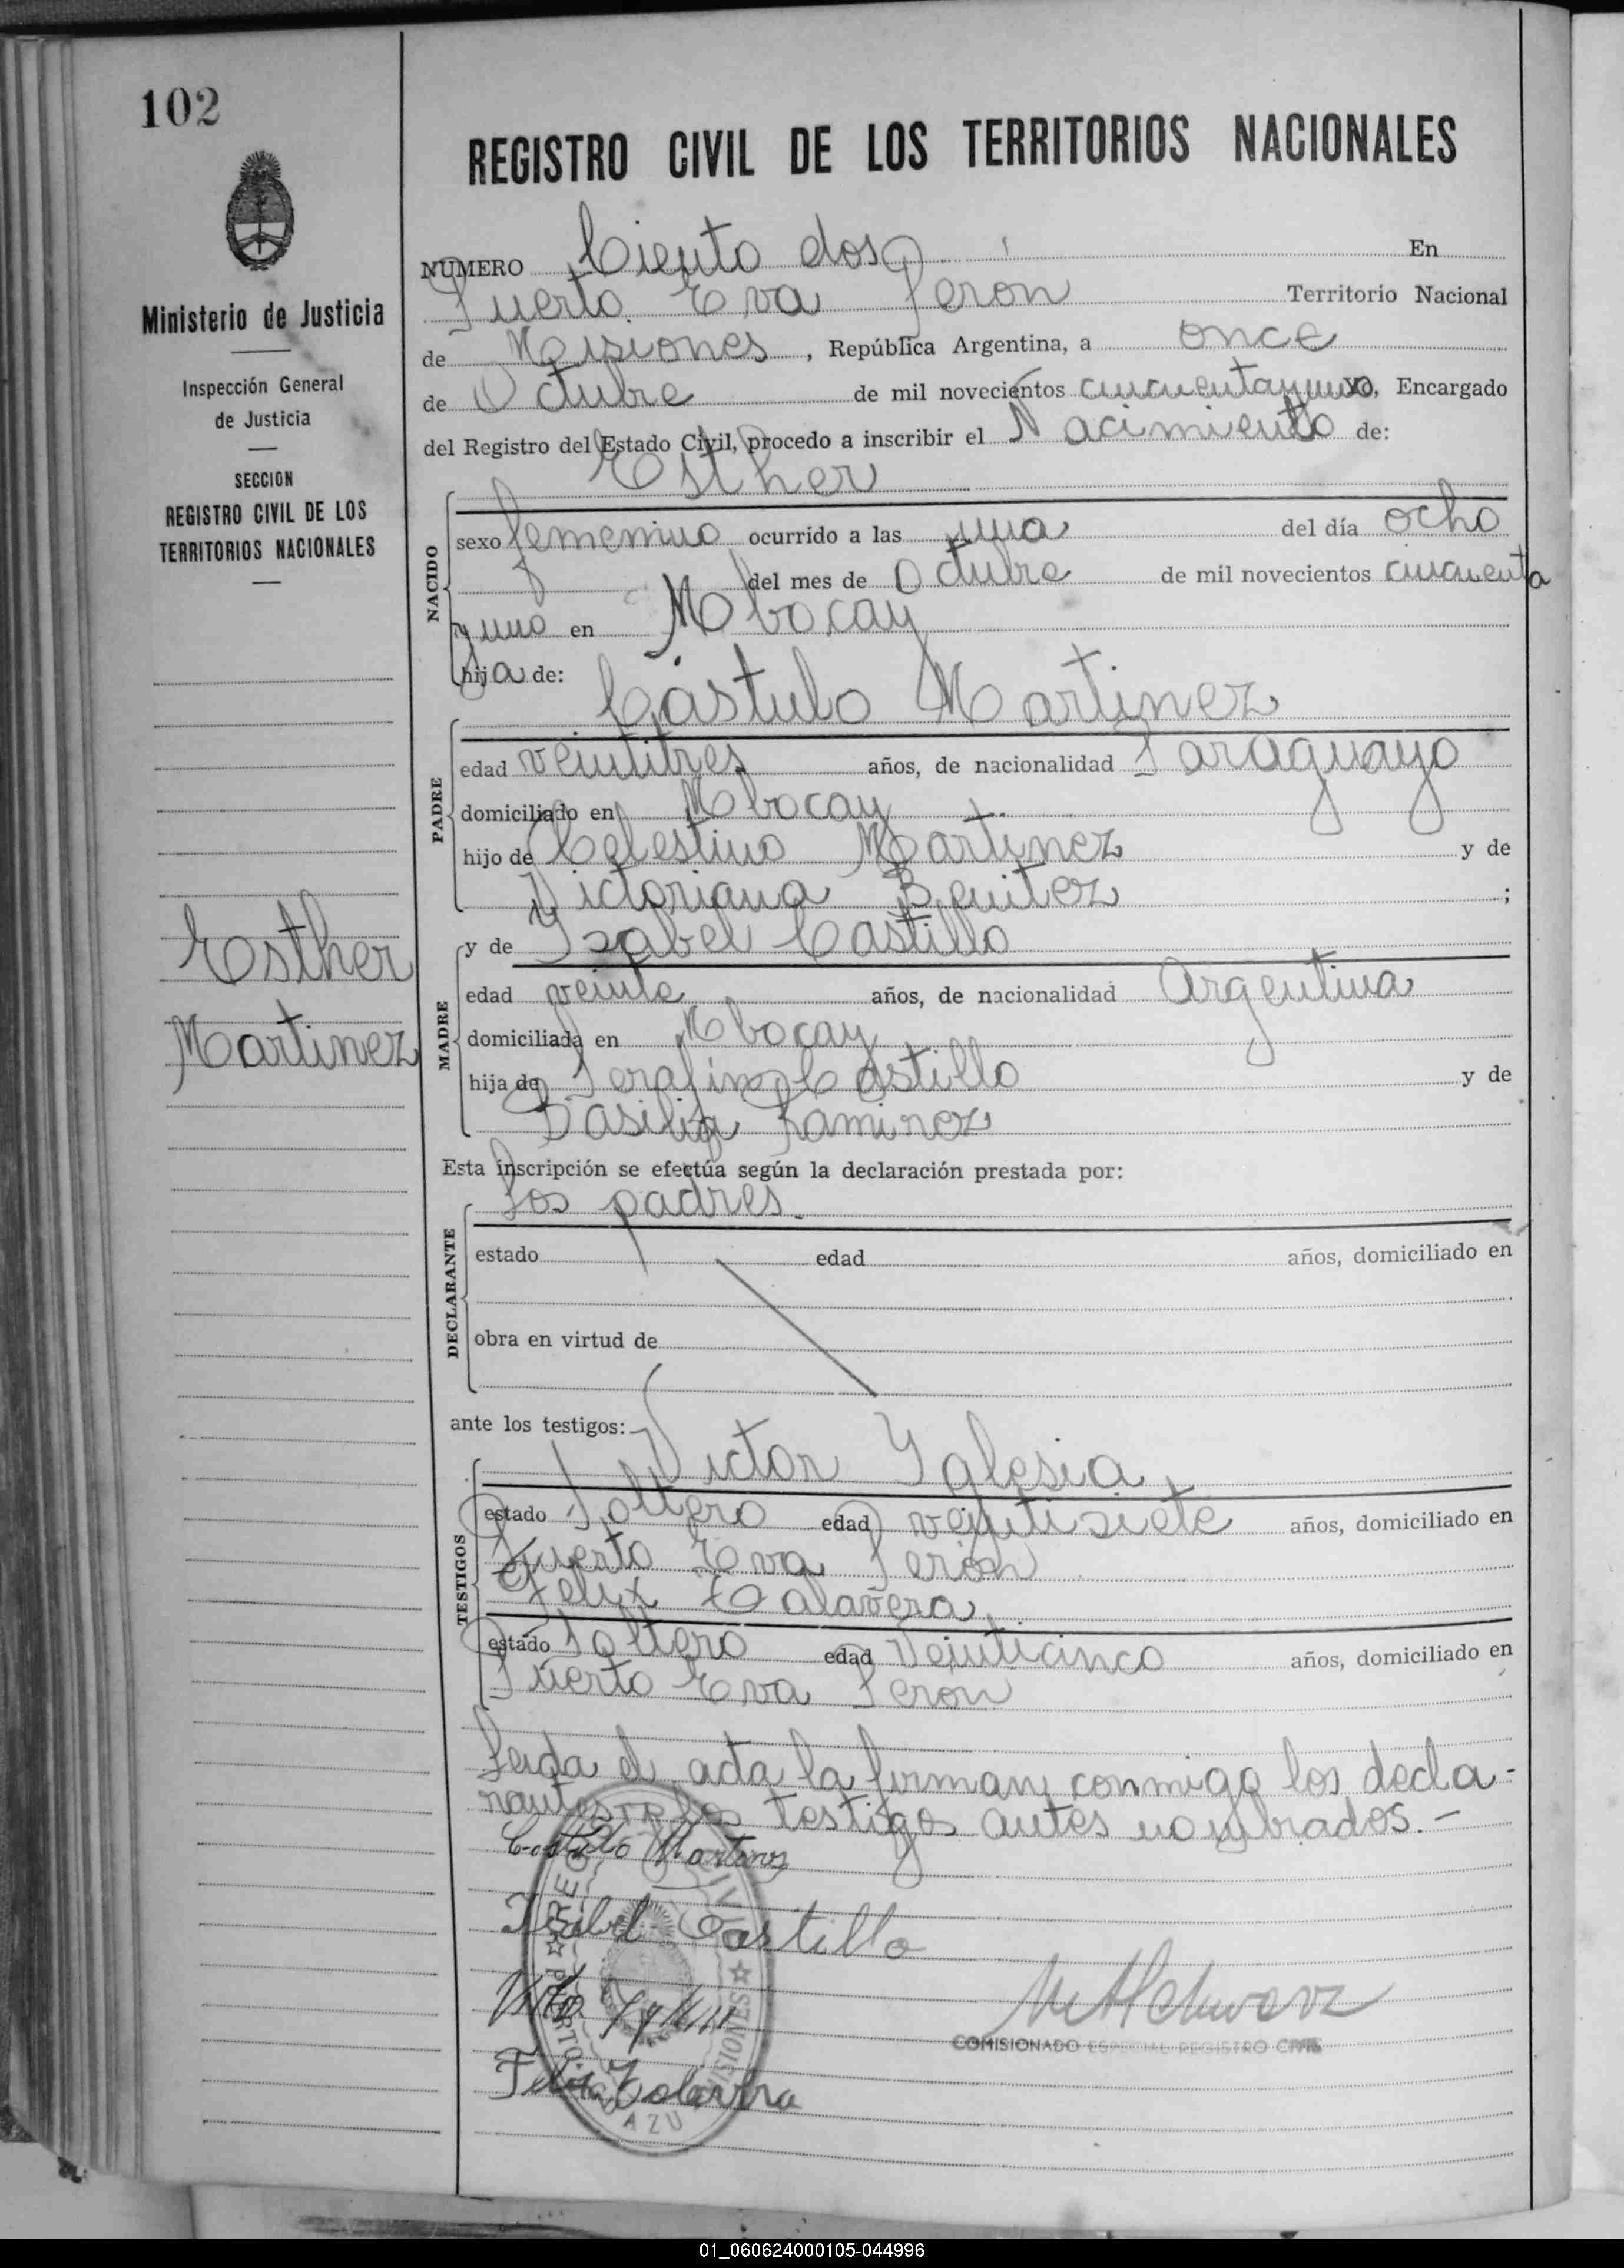 102
Ministerio de Justicia
Inspección General
de Justicia
SECCION
REGISTRO CIVIL DE LOS
TERRITORIOS NACIONALES
Esther
Martinez
REGISTRO CIVIL DE LOS TERRITORIOS NACIONALES
NUMERO Ciento dos En
Puerto Eva Peron Territorio Nacional
de Misiones, República Argentina, a once
de Octubre de mil novecientos cincuentayuno, Encargado
del Registro del Estado Civil, procedo a inscribir el Nacimiento de:
Esther
NACIDO
sexo femenino ocurrido a las una del día ocho
del mes de Octubre de mil novecientos cincuenta
y uno en Mbocay
hija de:
Cástulo Martinez
PADRE
edad veintitres años, de nacionalidad Paraguayo
domiciliado en Mbocay
hijo de Celestino Martinez y de
Victoriana Benitez ;
y de Ysabel Castillo
MADRE
edad veinte años, de nacionalidad Argentina
domiciliada en Mbocay
hija de Serafin Castillo y de
Basilia Ramirez
Esta inscripción se efectúa según la declaración prestada por:
los padres.
DECLARANTE
estado edad años, domiciliado en
obra en virtud de
ante los testigos:
Victor Yglesia
TESTIGOS
estado Soltero edad veintisiete años, domiciliado en
Puerto Eva Perón
Felix Talavera
estado Soltero edad Veinticinco años, domiciliado en
Puerto Eva Peron
Leida el acta la firman conmigo los decla-
rantes los testigos antes nombrados.-
Castulo Martinez
Isabel Castillo
Felix Talavera
COMISIONADO ESPECIAL REGISTRO CIVIL
01_060624000105-044996